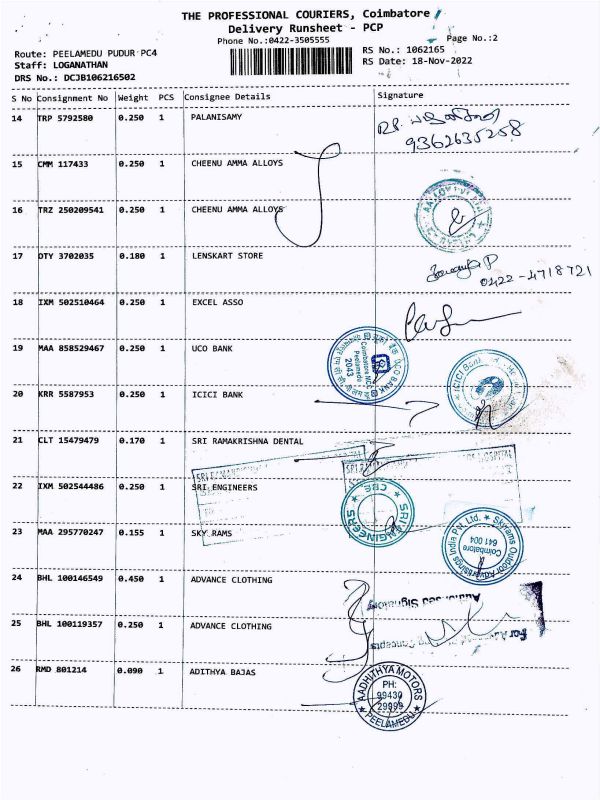 THE PROFESSIONAL COURIERS, Coimbatore
Delivery Runsheet - PCP
Phone No.:0422-3505555
Page No.:2
Route: PEELAMEDU PUDUR PC4
RS No.: 1062165
Staff: LOGANATHAN
RS Date: 18-Nov-2022
DRS No.: DCJB106216502
S No Consignment No Weight PCS Consignee Details Signature
14 TRP 5792580 0.250 1 PALANISAMY
9362635258
15 CMM 117433 0.250 1 CHEENU AMMA ALLOYS
16 TRZ 250209541 0.250 1 CHEENU AMMA ALLOYS
17 DTY 3702035 0.180 1 LENSKART STORE
0422-4718721
18 IXM 502510464 0.250 1 EXCEL ASSO
19 MAA 858529467 0.250 1 UCO BANK
UCO BANK
Coimbatore NCC
Peelamedu
2043
20 KRR 5587953 0.250 1 ICICI BANK
ICICI Bank
21 CLT 15479479 0.170 1 SRI RAMAKRISHNA DENTAL
22 IXM 502544486 0.250 1 SRI ENGINEERS
SRI ENGINEERS
CBE
23 MAA 295770247 0.155 1 SKY RAMS
Skyrams Outdoor Advertisings India Pvt. Ltd.
Coimbatore
641 004
24 BHL 100146549 0.450 1 ADVANCE CLOTHING
Authorised Signatory
25 BHL 100119357 0.250 1 ADVANCE CLOTHING
26 RMD 801214 0.090 1 ADITHYA BAJAS
AADHITHYA MOTORS
PH:
99430
29999
PEELAMEDU